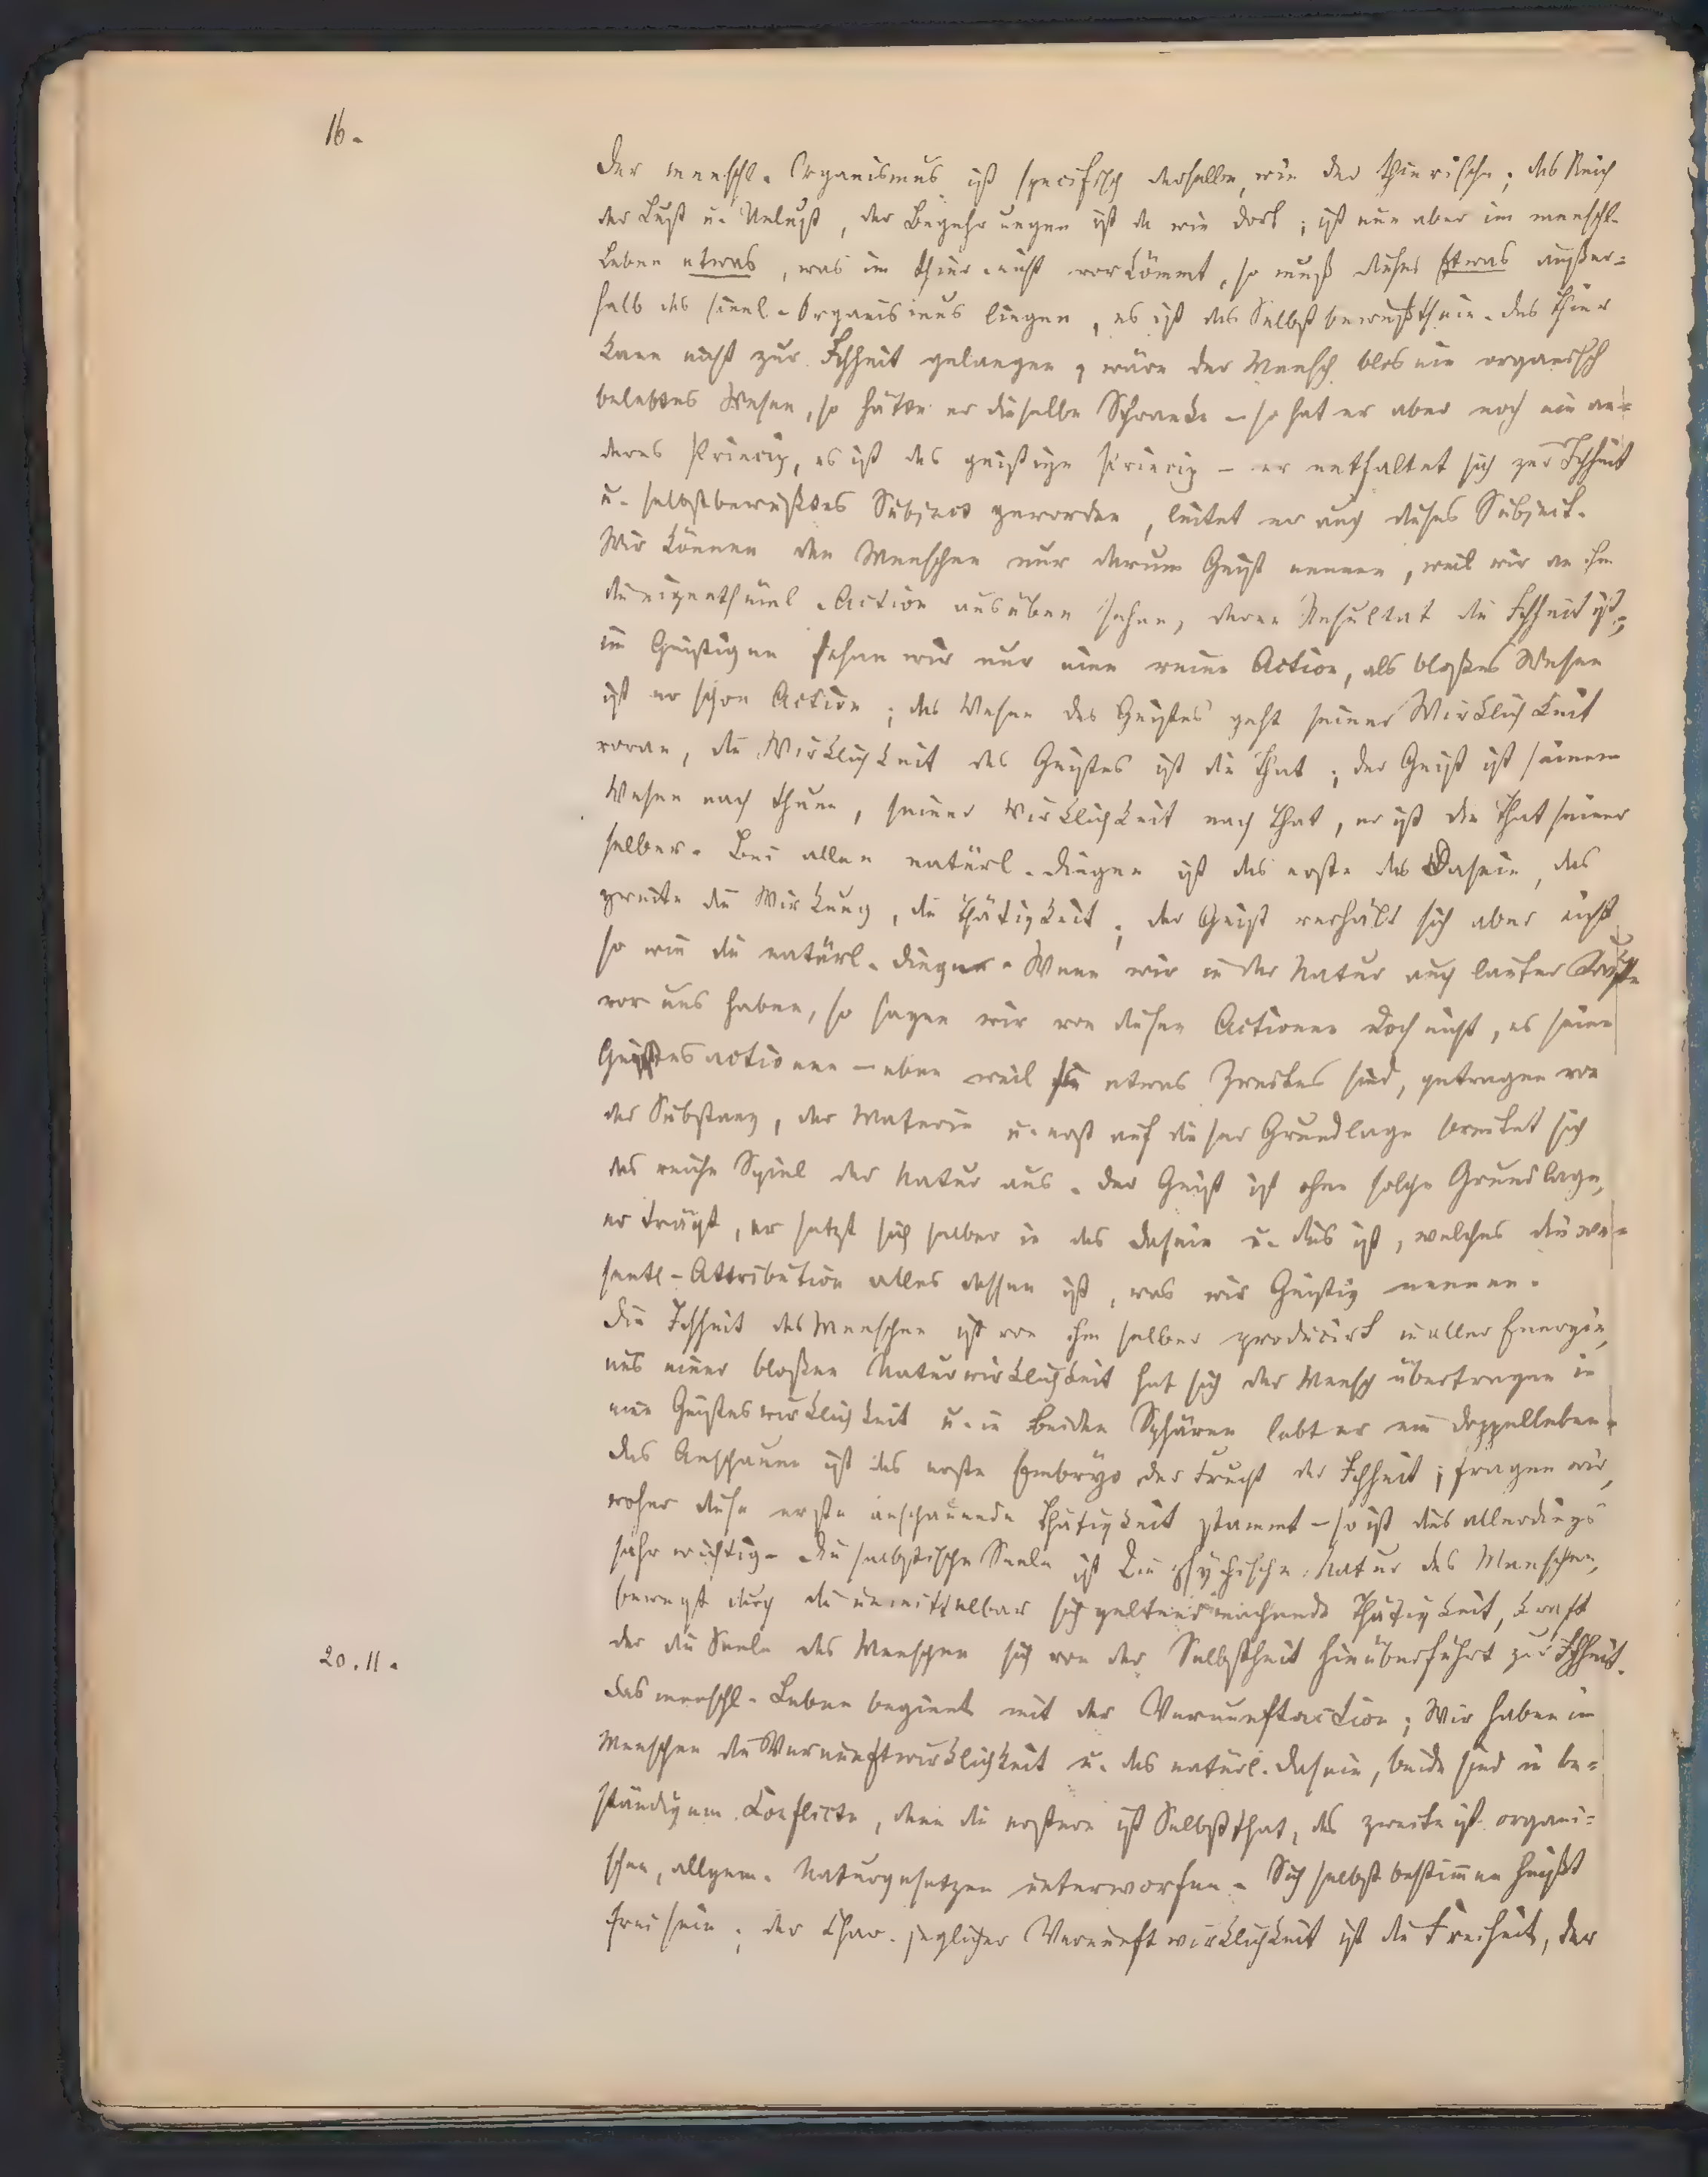 16.
Der menschl. Organismus ist specifisch derselbe, wie der thierische; das Reich
der Lust u. Unlust, der Begehrungen ist da wie dort; ist nun aber im menschl.
Leben etwas, was im Thier nicht vorkömmt, so muß dieses Etwas außer=
halb des sinnl. Organismus liegen, es ist das Selbstbewußtsein. Das Thier
kann nicht zur Ichheit gelangen, wäre der Mensch blos ein organisch
belebtes Wesen, so hätte er dieselbe Schranke – so hat er aber noch ein an=
deres Princip, es ist das geistige Princip – er entfaltet sich zur Ichheit
u. selbstbewußtes Subject geworden, leitet er auch dieses Subject.
Wir können den Menschen nur darum Geist nennen, weil wir an ihm
die eigenthüml. Action ausüben sehen, deren Resultat die Ichheit ist;
im Geistigen sehen wir nur eine reine Action, als bloßes Wesen
ist er schon Action; das Wesen des Geistes geht seiner Wirklichkeit
voran, die Wirklichkeit des Geistes ist die That; der Geist ist seinem
Wesen nach Thun, seiner Wirklichkeit nach That, er ist die That seiner
selber. Bei allen natürl. Dingen ist das erste das Dasein, das
zweite die Wirkung, die Thätigkeit; der Geist verhält sich aber nicht
so wie die natürl. Dinge. Wenn wir in der Natur auch lauter Kräfte
vor uns haben, so sagen wir von diesen Actionen doch nicht, es seien
Geistesactionen – eben weil sie etwas Zweites sind, getragen von
der Substanz, der Materie u. erst auf dieser Grundlage breitet sich
das reiche Spiel der Natur aus. Der Geist ist ohne solche Grundlage,
er trägt, er setzt sich selber in das Dasein u. dies ist, welches die we=
sentl. Attribution alles dessen ist, was wir Geistig nennen.
Die Ichheit des Menschen ist von ihm selber producirt in aller Energie,
aus einer bloßen Naturwirklichkeit hat sich der Mensch übertragen in
eine Geisteswirklichkeit u. in beiden Sphären lebt er ein Doppelleben.
Das Anschauen ist das erste Embryo der Frucht der Ichheit; fragen wir,
woher diese erste anschauende Thätigkeit stammt – so ist dies allerdings
sehr wichtig. Die selbstische Seele ist die psychische Natur des Menschen,
bewegt durch die unmittelbar sich geltend machende Thätigkeit, kraft
der die Seele des Menschen sich von der Selbstheit hinüberführt zur Ichheit.
20.11.
Das menschl. Leben beginnt mit der Vernunftaction; Wir haben im
Menschen die Vernunftwirklichkeit u. das natürl. Dasein, beide sind in be=
ständigem Conflicte, denn die erstere ist Selbstthat, das zweite ist organi=
schen, allgem. Naturgesetzen unterworfen. Sich selbst bestimmen heißt
frei sein; der Char. jeglicher Vernunftwirklichkeit ist die Freiheit, der